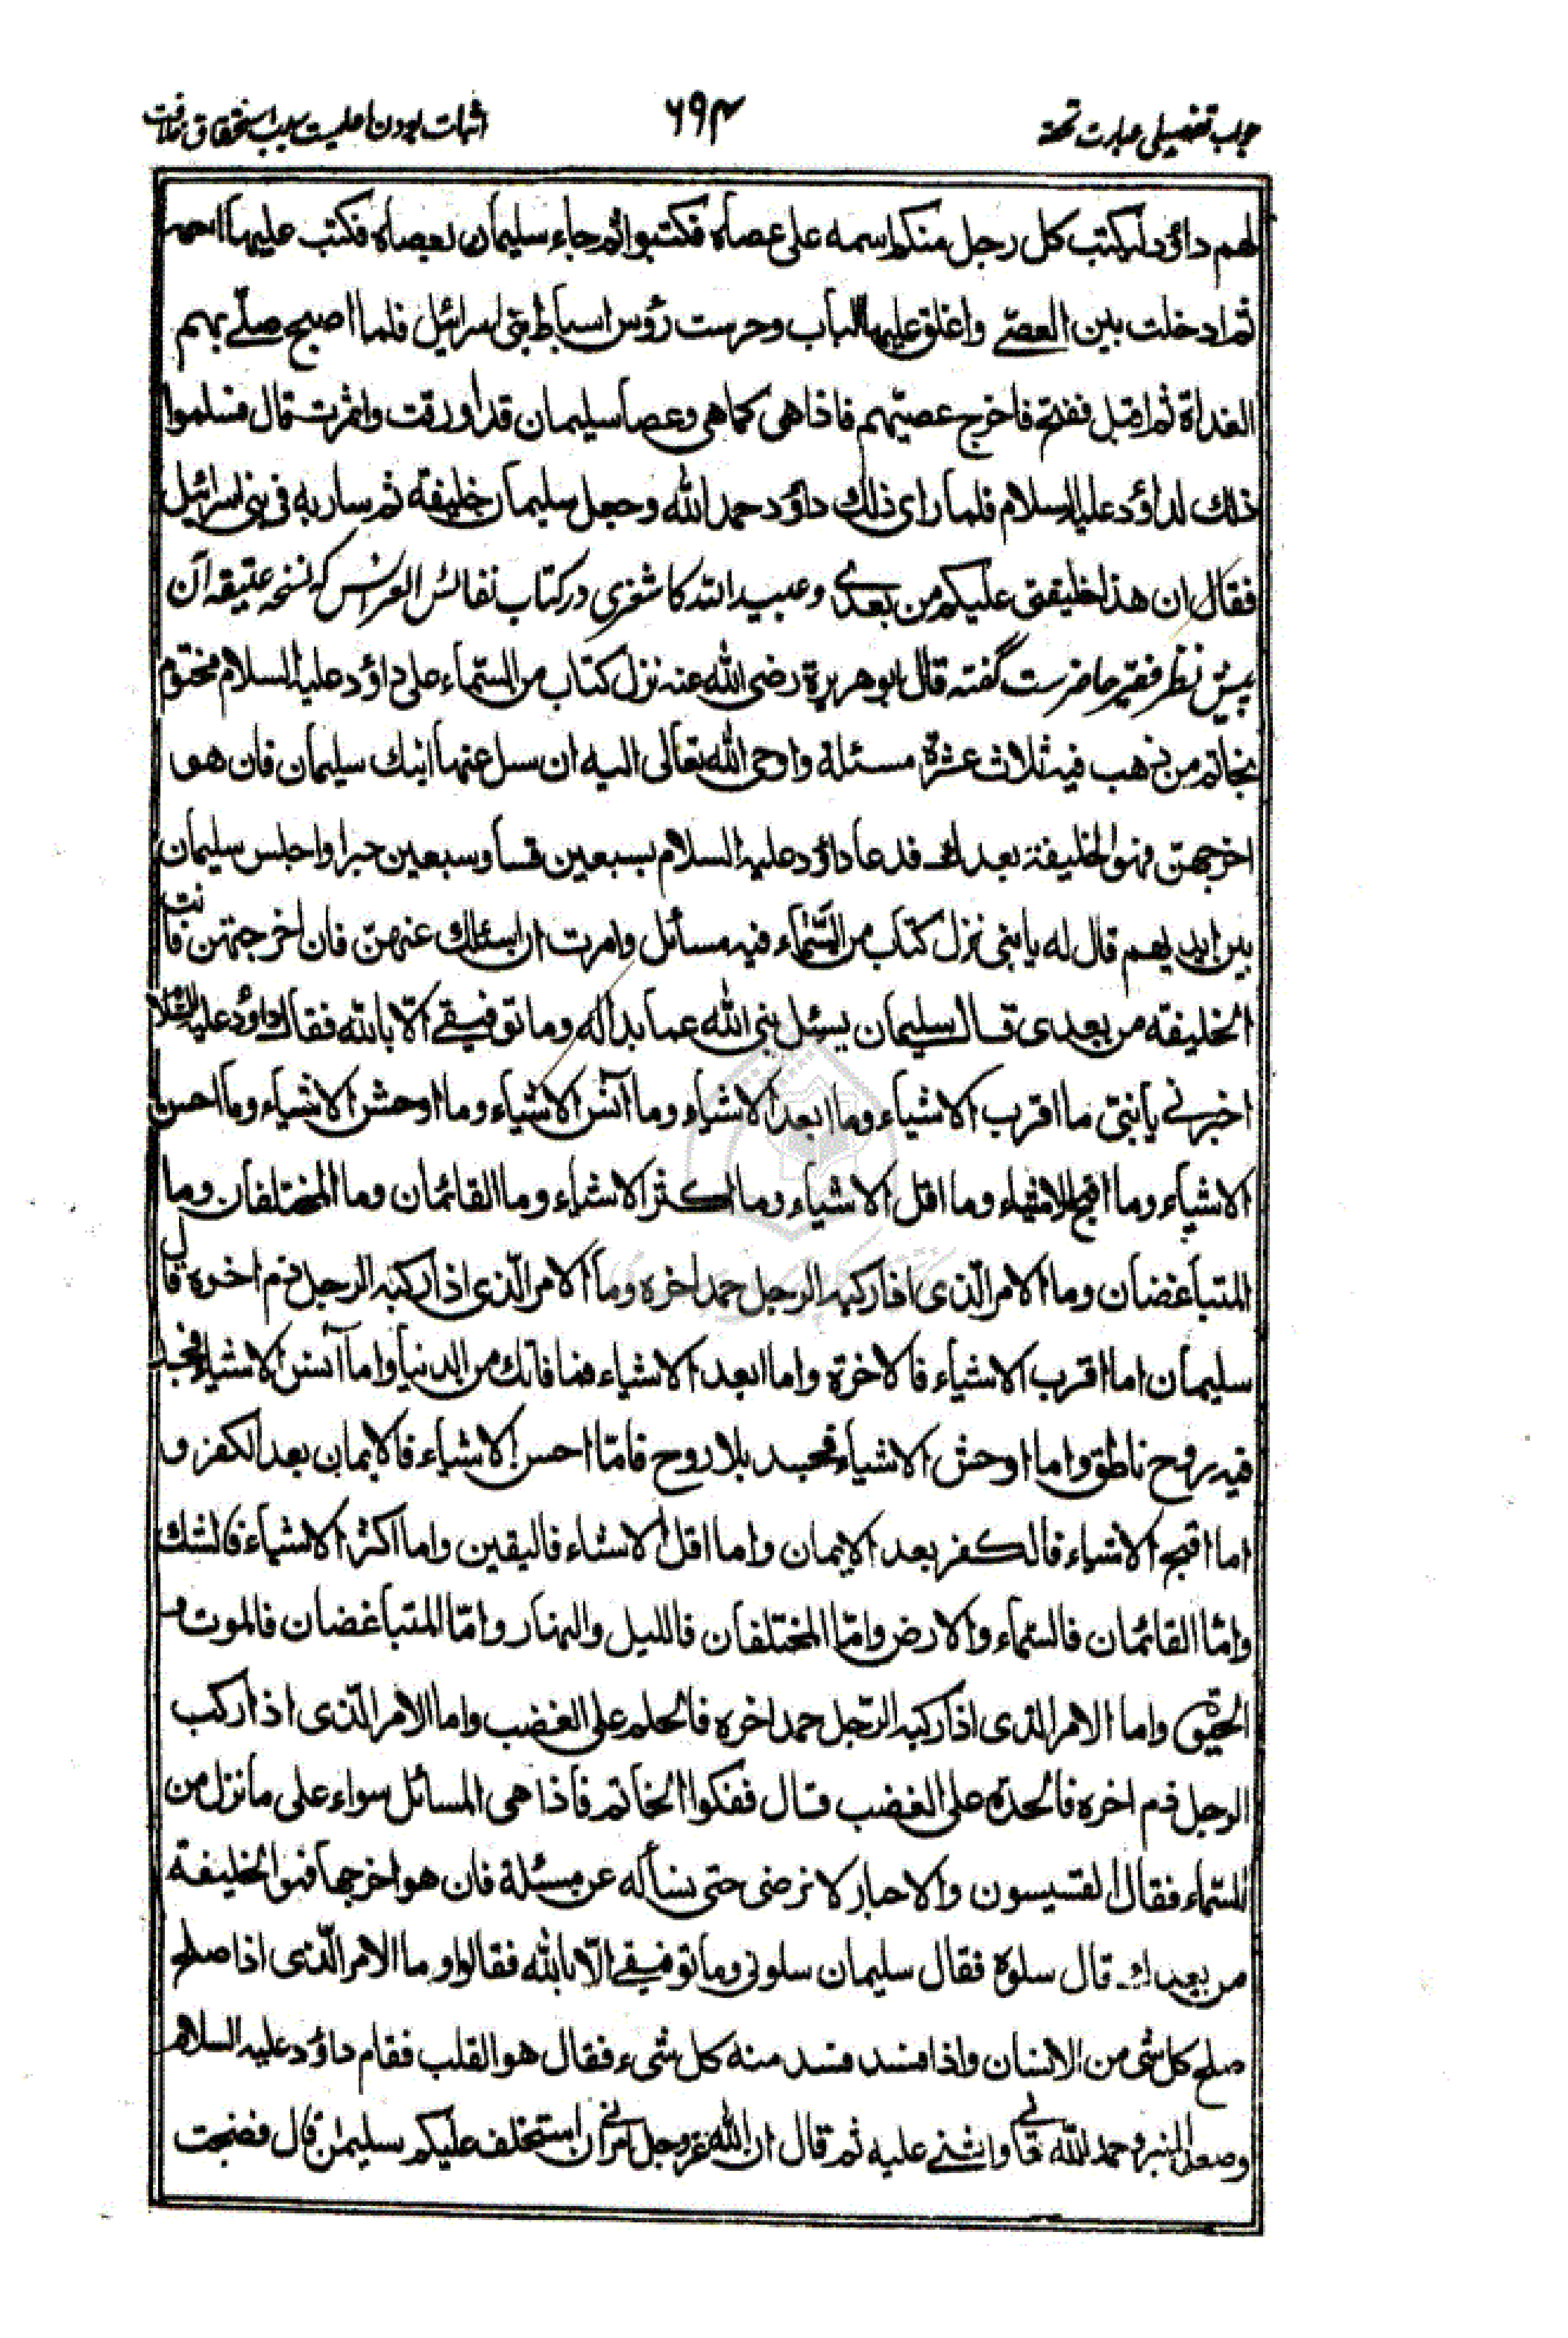 جواب تفصیلی عبارت تحفة
۶۹۴
اثبات بودن اعلمیت سبب استحقاق خلافت
لهم داؤد لیکتب کل رجل منکم اسمه علی عصاه فکتبوا ثم جاء سلیمان بعصاه فکتب علیها اسمه
ثم ادخلت بین العصی واغلق علیها الباب وحرست رؤس اسباط بنی اسرائیل فلما اصبح صلے بهم
الغداة ثم اقبل ففتح فاخرج عصیّهم فاذا هی کماهی وعصا سلیمان قد اورقت واثمرت قال فسلموا
ذلك لداؤد علیه السلام فلما رای ذلك داؤد حمد الله وجعل سلیمان خلیفة ثم سار به فی بنی اسرائیل
فقال ان هذا خلیفتی علیکم من بعدی وعبید الله کاشغری در کتاب نفائس العرائس که نسخه عتیقه آن
پیش نظر فقیر حاضرست گفته قال ابو هریرة رضی الله عنه نزل کتاب من السّماء علی داؤد علیه السلام مختوم
بخاتم من ذهب فیه ثلاث عشرة مسئلة واوحی الله تعالی الیه ان سل عنها ابنك سلیمان فان هو
اخرجهنّ فهو الخلیفة بعدك فدعا داؤد علیه السلام بسبعین قسا وسبعین حبرا واجلس سلیمان
بین ایدیهم قال له یا بنی نزل کتاب من السّماء فیه مسائل وامرت ان اسئلك عنهنّ فان اخرجتهن فانت
الخلیفة من بعدی قال سلیمان یسئل نبی الله عما بدا له وما توفیقے الّا بالله فقال داؤد علیه السّلام
اخبرنے یا بنیّ ما اقرب الاشیاء وما ابعد الاشیاء وما آنس الاشیاء وما اوحش الاشیاء وما احسن
الاشیاء وما اقبح الاشیاء وما اقل الاشیاء وما اکثر الاشیاء وما القائمان وما المختلفان وما
المتباغضان وما الامر الّذی اذا رکبه الرجل حمد اخره وما الامر الّذی اذا رکبه الرجل ذم اخره قال
سلیمان اما اقرب الاشیاء فالاخرة واما ابعد الاشیاء فما فاتك من الدنیا واما آنس الاشیاء فجسد
فیه روح ناطق واما اوحش الاشیاء فجسد بلا روح فامّا احسن الاشیاء فالایمان بعد الکفر و
اما اقبح الاشیاء فالکفر بعد الایمان واما اقل الاشیاء فالیقین واما اکثر الاشیاء فالشك
وامّا القائمان فالسّماء والارض وامّا المختلفان فاللیل والنهار وامّا المتباغضان فالموت و
الحیٰوة واما الامر الذی اذا رکبه الرّجل حمد اخره فالحلم علی الغضب واما الامر الّذی اذا رکب
الرجل ذم اخره فالحدة علی الغضب قال ففکوا الخاتم فاذا هی المسائل سواء علی ما نزل من
السّماء فقال القسیسون والاحبار لا نرضی حتی نسأله عن مسئلة فان هو اخرجها فهو الخلیفة
من بعدك قال سلوه فقال سلیمان سلونی وما توفیقے الّا بالله فقالوا وما الامر الّذی اذا صلح
صلح کل شی من الانسان واذا فسد فسد منه کل شیء فقال هو القلب فقام داؤد علیه السلام
وصعد المنبر وحمد الله تعالی واثنے علیه ثم قال ان الله عز وجل امرنی ان استخلف علیکم سلیمان قال فضجت